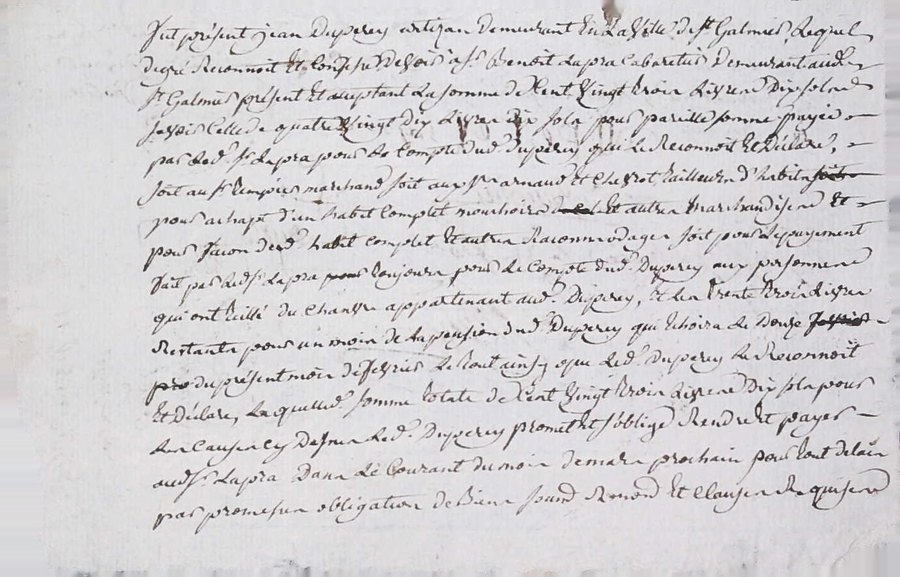 fut présent jean Duperey artizan demeurant En La Ville de St Galmier, Lequel
degré Reconnoit Et Confesse Devoir à Sr Benoit Lapra Cabaretier Demeurant aud.
St Galmier présent Et acceptant La somme de Cent Vingt Trois Livres Dix sols
Scavoir Celle de quatre Vingt Dix Livres Dix sols pour pareille somme payée
par Led. Sr Lapra pour Le Compte dud. Duperey qui Le Reconnoit Et Déclare,
soit au Sr marchand soit aux Srs arnaud Et Chevrot Tailleurs d'habits
pour achapt d'un habit Complet mouchoirs Et autres Marchandises Et
pour façon dud. habit complet Et autres Racommodages soit pour Le payement
fait par Led Sr Lapra Toujours pour Le Compte dud. Duperey aux personnes
qui ont Teillé du Chanvre appartenant aud. Duperey, Et Les Trente Trois Livres
Restants pour un mois de La pension dud. Duperey qui Echoira Le Douze
du présent mois de fevrier Le Tout ainsy que Led. Duperey Le Reconnoit
Et Déclare, Laquelle somme Totale de Cent Vingt Trois Livres Dix sols pour
Les Causes Cy Dessus Led. Duperey promet Et s'oblige Rendre Et payer
aud Sr Lapra Dans Le Courant du mois de mars prochain pour tout delais
par promesse obligation de Biens Et Clauses Requises